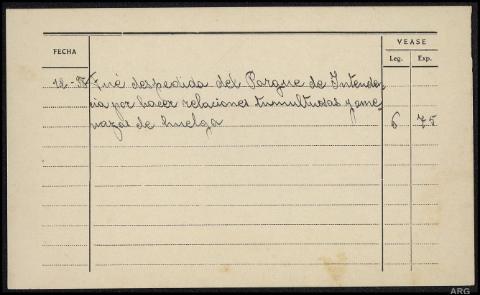 VEASE
FECHA
Leg. Exp.
Fué despedida del Parque de Intenden
cia por hacer relaciones tumultuosas y ame
nazas de huelga 6 75
ARG